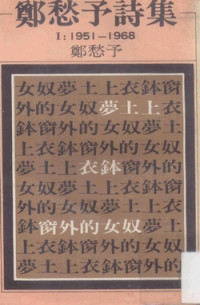 鄭愁予詩集
I：1951—1968
鄭愁予
女奴夢土上衣鉢窗
外的女奴夢土上衣
鉢窗外的女奴夢土
上衣鉢窗外的女奴
夢土上衣鉢窗外的
女奴夢土上衣鉢窗
外的女奴夢土上衣
鉢窗外的女奴夢土
上衣鉢窗外的女奴
夢土上衣鉢窗外的